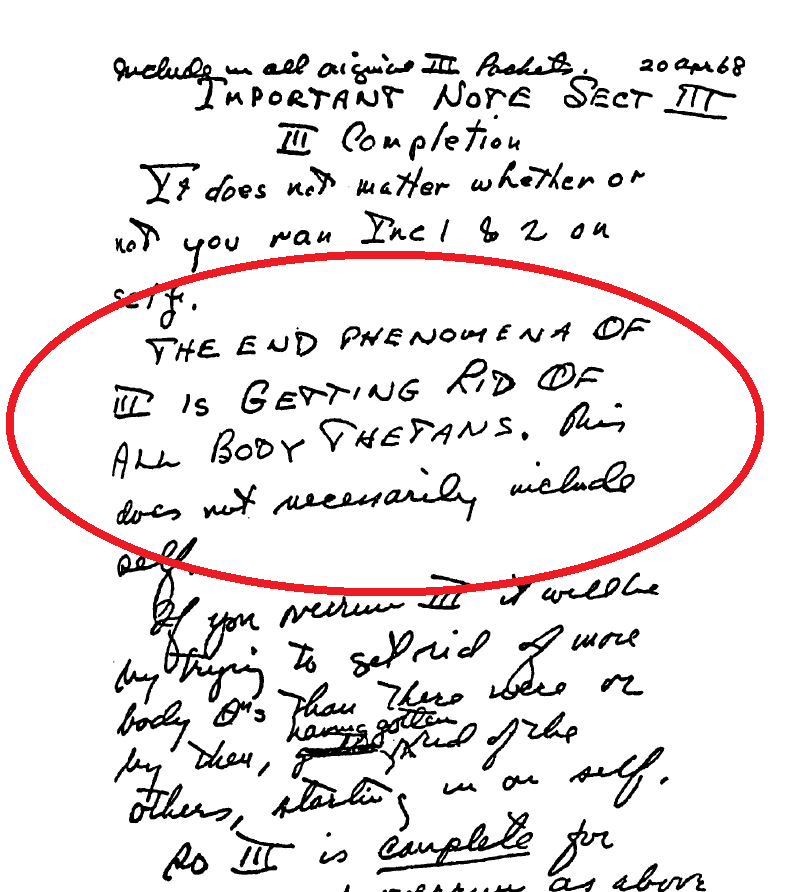 Include in all original III Packets. 20 Apr 68
IMPORTANT NOTE SECT III
III Completion
It does not matter whether or
not you ran Inc 1 & 2 on
self.
THE END PHENOMENA OF
III IS GETTING RID OF
ALL BODY THETANS. This
does not necessarily include
self.
If you overrun III it will be
by trying to get rid of more
body θ's than there were or
by then, having gotten rid of the
others, starting in on self.
So III is complete for
overrun as above